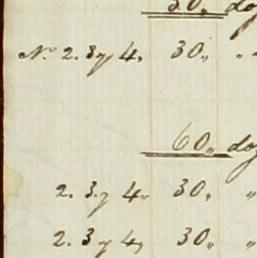 30„ do
Nº 2. 3 y 4„ 30„ „
60„ do
2. 3 y 4„ 30„ „
2. 3 y 4„ 30„ „